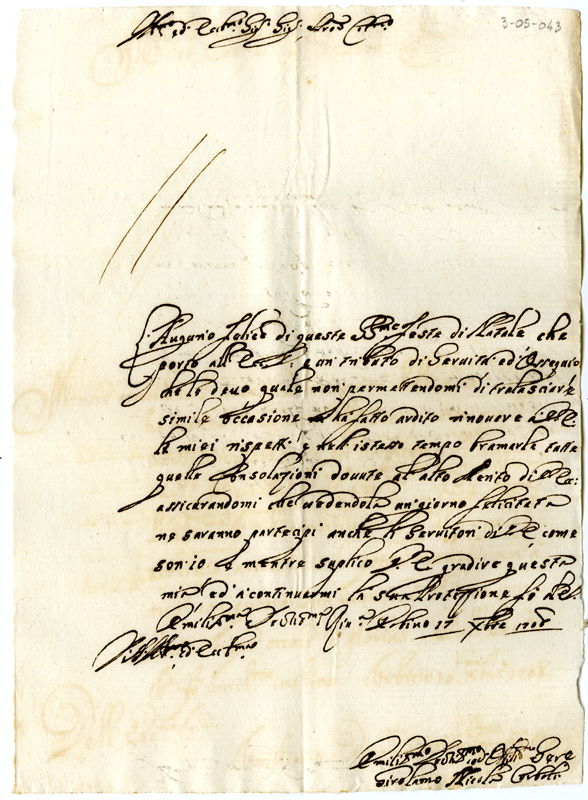 3-05-043
Ill.mo ed Ecc.mo Sig.r Sig.r Pron Col.mo
L'Augurio felice di queste SS.me feste di Natale che
porto all' E. V. è un tributo di servitù ed Ossequio
che le devo quale non permettendomi di tralasciare
simile occasione ha fatto ardito rinovare à V.E.
li miei rispetti, e nell' istesso tempo bramarle tutte
quelle Consolazioni dovute al alto Merito di V.E.
assicurandomi che vedendola un giorno felicitata
ne saranno partecipi anche li Servitori di V.E. come
son' io e mentre suplico V.E. gradire questa
mia ed à continuarmi la sua Protezzione fò all' E.V.
Umiliss.ma Riv.za Urbino 17 Xbre 1706
Di V.E. Ill.ma ed Ecc.ma
Umilis.mo Dev.mo Serv.re
Girolamo Nicolò